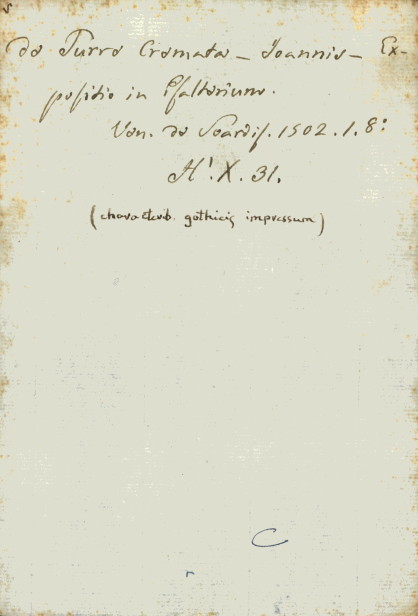 de Turre Cremata – Joannis – Ex-
positio in Psalterium.
Ven. de Soardis. 1502. 1. 8:
H'. X. 31.
(characterib. gothicis impressum)
C